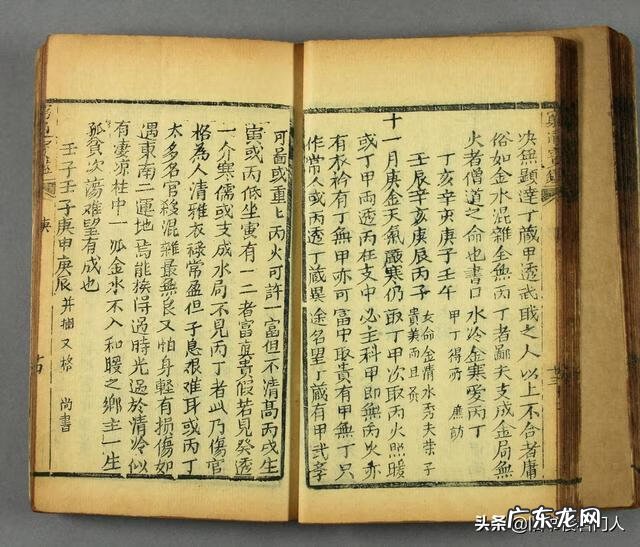 决無顯達丁藏甲透武戝之人以上不合者庸
俗如金水混雜全無丙丁者鄙夫支成金局無
火者僧道之命也書曰水冷金寒愛丙丁
丁亥辛亥庚子壬午 甲丁得所 廉訪
壬辰辛亥庚辰丙子 女命金清水秀夫荣子貴美而且炙
十一月庚金天氣嚴寒仍取丁甲次取丙火照暖
或丁甲两透丙在支中必主科甲即無丙火亦
有衣衿有丁無甲亦可富中取貴有甲無丁只
作常人或丙透丁藏異途名望丁藏有甲武学
可啚或重重丙火可許一富但不清高丙戌生
寅或丙低坐寅有一二者富真貴假若見癸透
一介寒儒或支成水局不見丙丁者此乃傷官
格為人清雅衣祿常盈但子息艱难耳或丙丁
太多名官殺混雜最無良又怕身輕有損傷如
遇東南二運地焉能挨得過時光過於清冷似
有凄凉柱中一派金水不入和暖之鄉主一生
孤貧次蕩难望有成也
壬子壬子庚申庚辰 井攔叉格 尚書
庚
头条
广东龙网